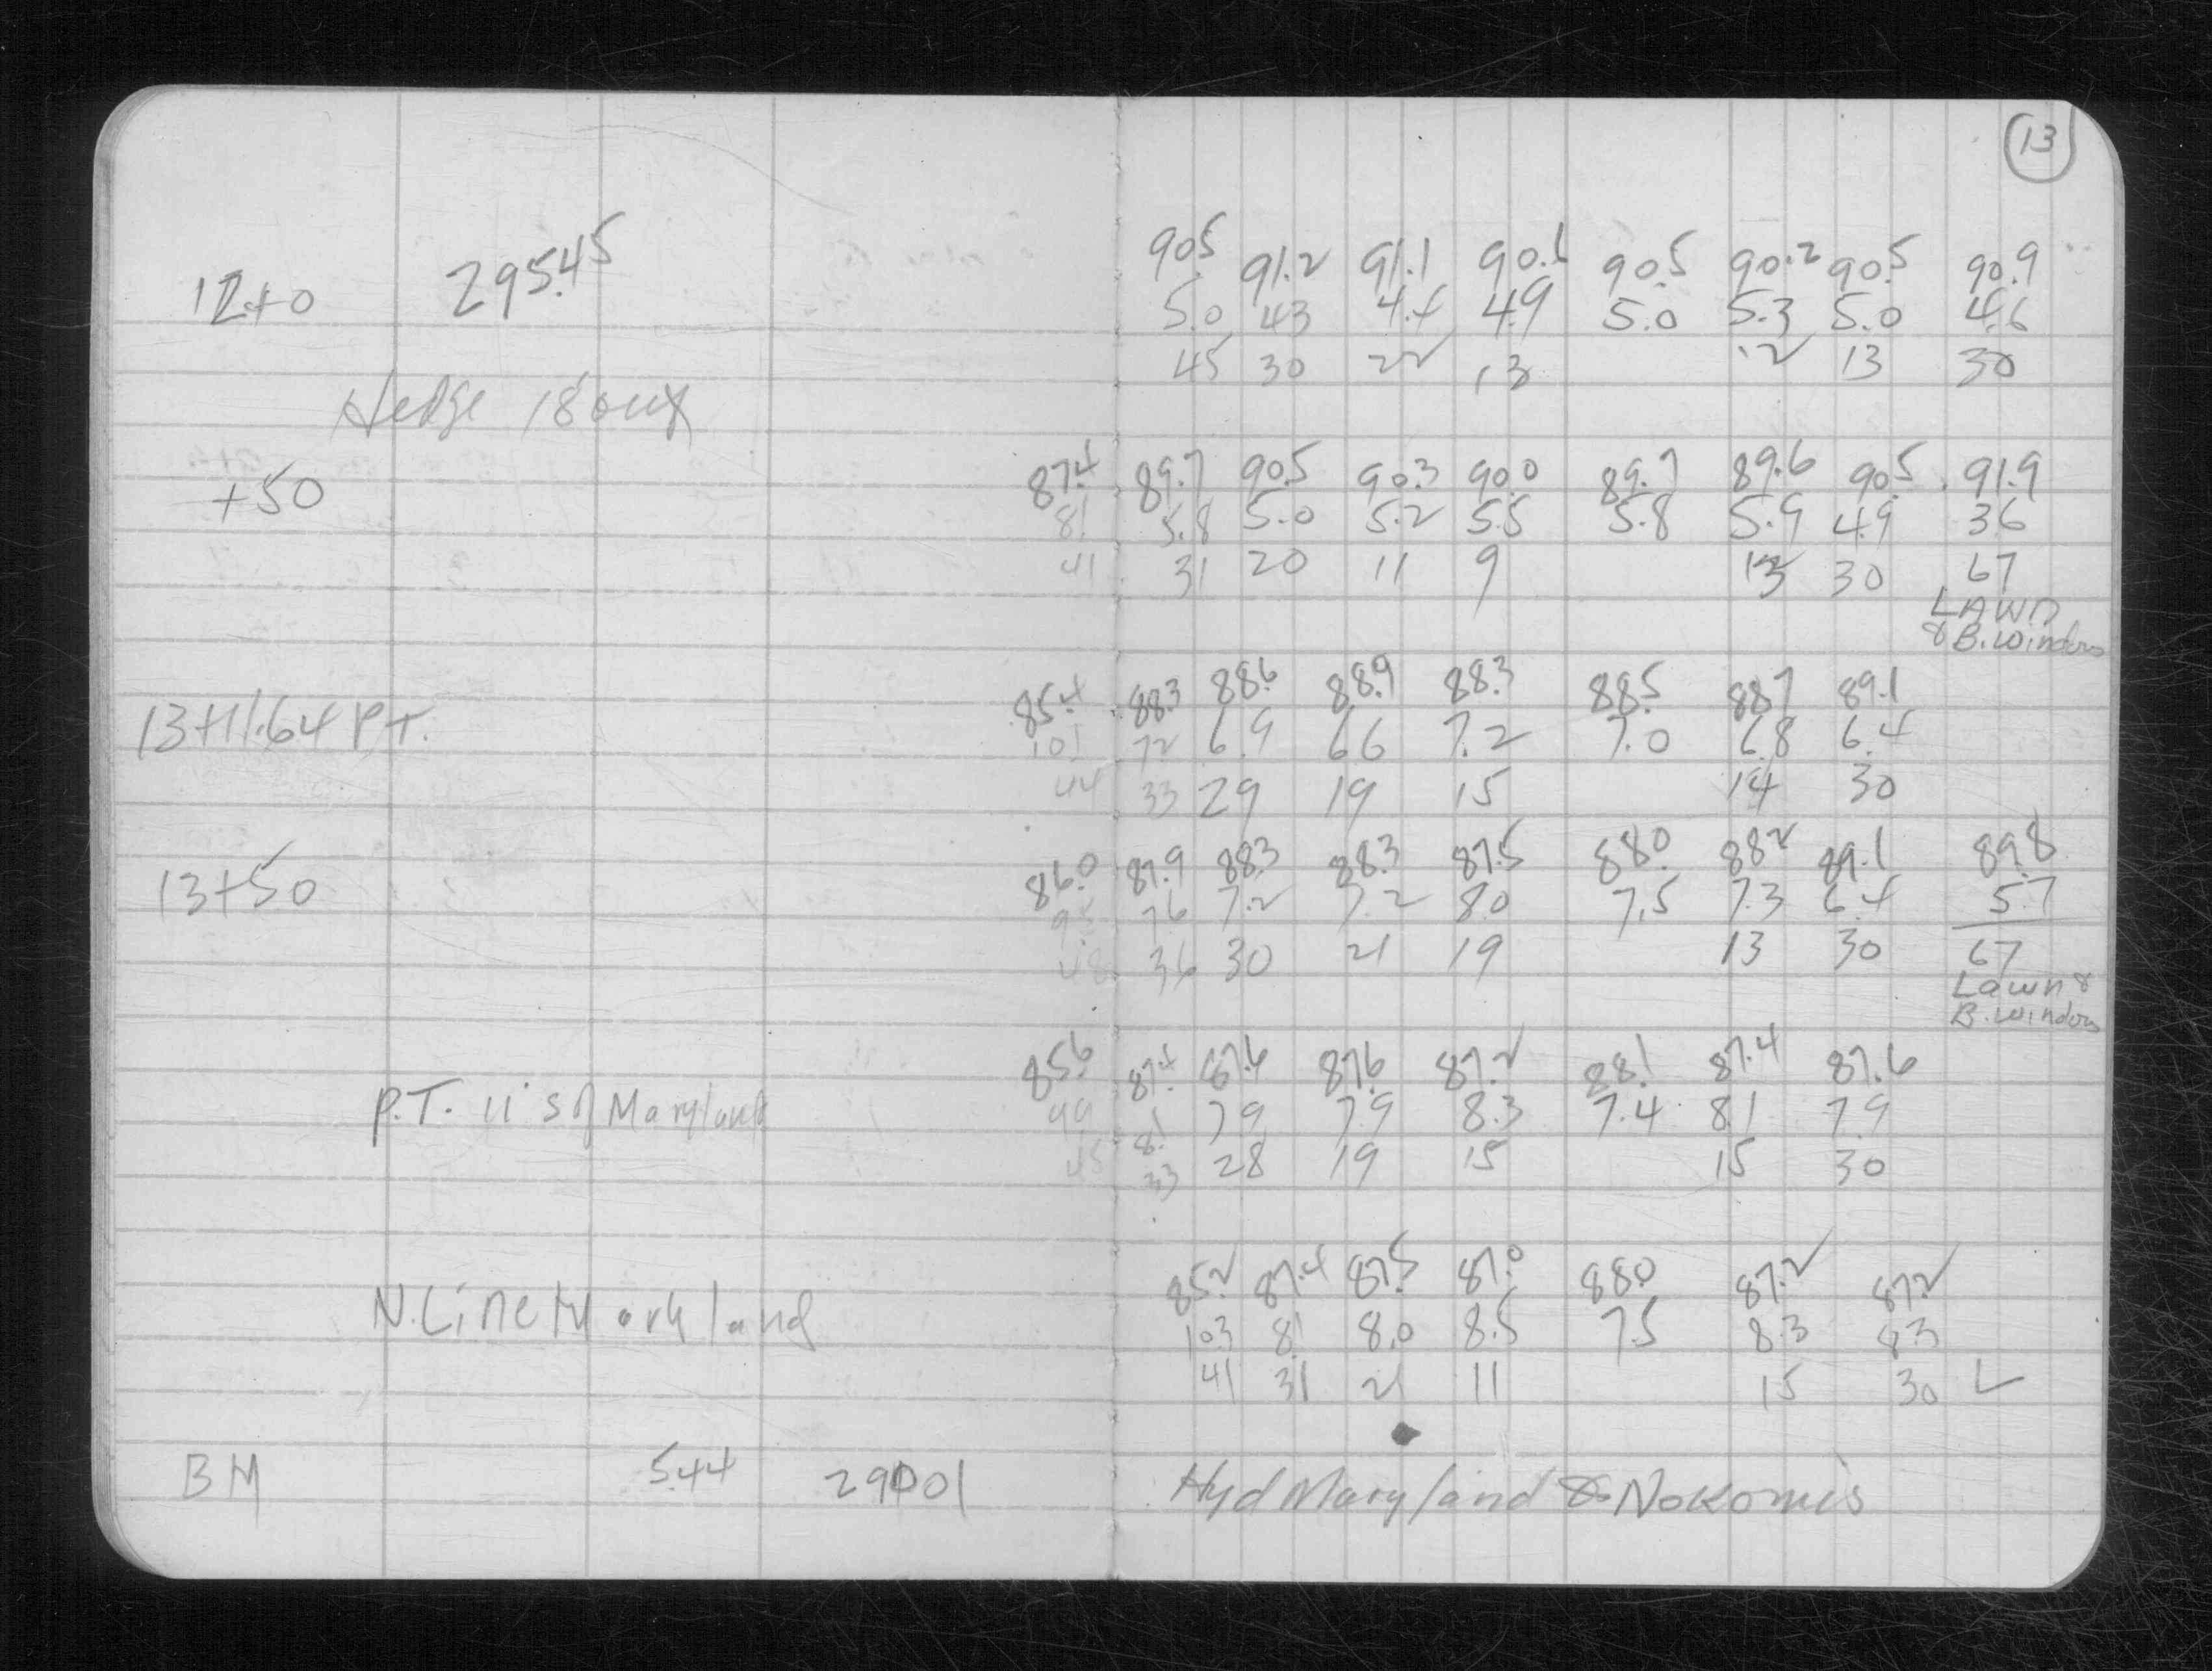 13
90.5 91.2 91.1 90.6 90.5 90.2 90.5 90.9
12+0 295.45 5.0 43 4.4 4.9 5.0 5.3 5.0 4.6
45 30 22 13 12 13 30
Hedge 18 out
87.4 89.7 90.5 90.3 90.0 89.7 89.6 90.5 91.9
+50 81 5.8 5.0 5.2 5.5 5.8 5.9 4.9 36
41 31 20 11 9 13 30 67
LAWN
& B. Window
85.4 88.3 88.6 88.9 88.3 88.5 88.7 89.1
13+11.64 P.T. 101 72 6.9 66 7.2 7.0 6.8 6.4
44 33 29 19 15 14 30
86.0 87.9 88.3 88.3 87.5 88.0 88.2 89.1 89.8
13+50 95 76 7.2 7.2 80 7.5 7.3 6.4 5.7
48 36 30 21 19 13 30 67
Lawn &
B. Window
85.6 87.4 87.6 87.6 87.2 88.1 87.4 87.6
P.T. 11' S of Maryland 99 8.1 79 7.9 8.3 7.4 81 7.9
45 33 28 19 15 15 30
85.2 87.4 87.5 87.0 88.0 87.2 87.2
N. Line Maryland 103 81 8.0 8.5 7.5 8.3 83
41 31 21 11 15 30 L
BM 5.44 29001 Hyd Maryland & Nokomis